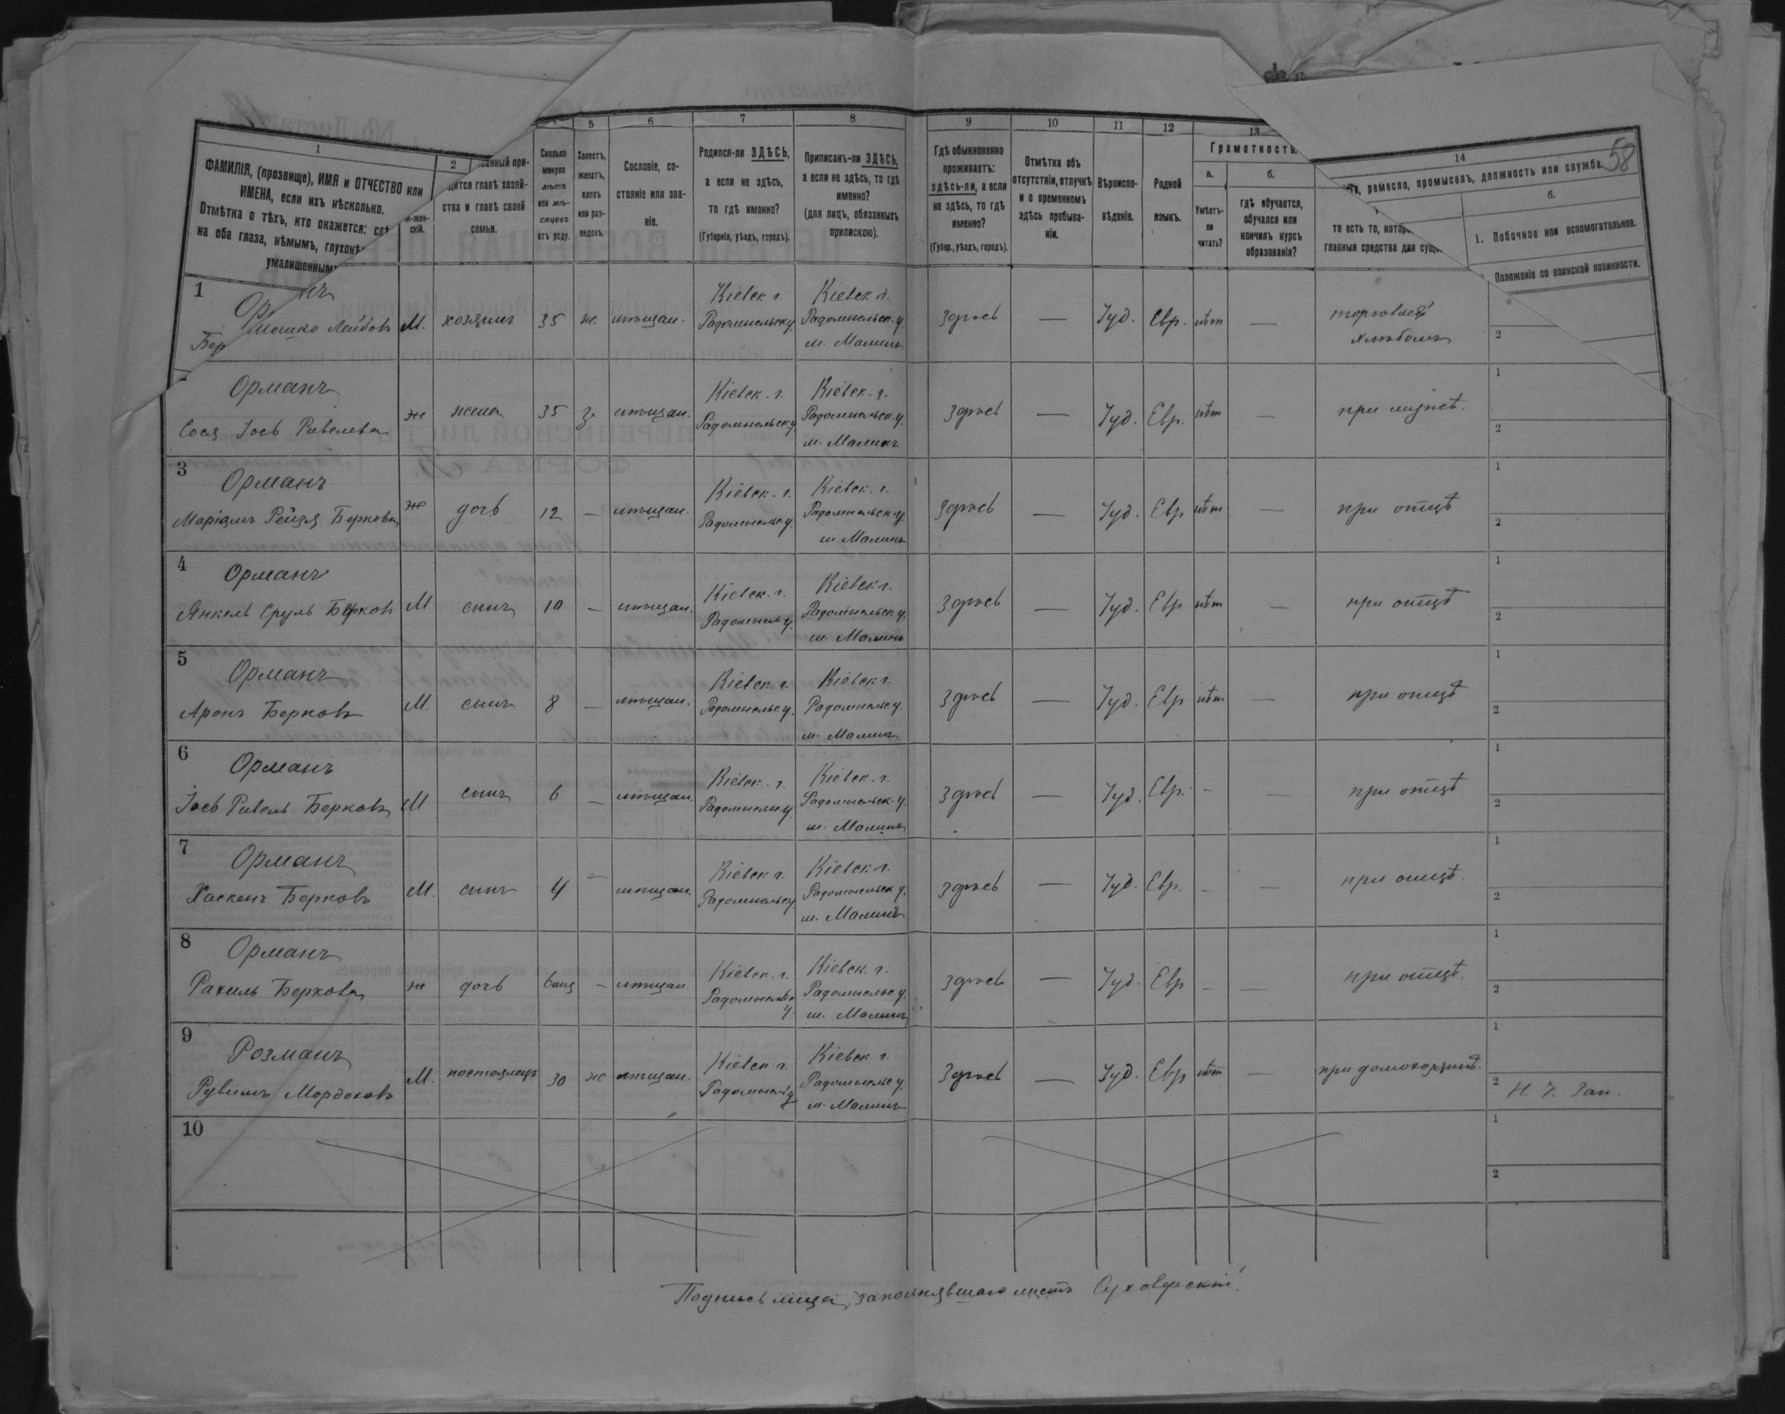 58
1 2 5 6 7 8 9 10 11 12 13 14
ФАМИЛІЯ, (прозвище), ИМЯ и ОТЧЕСТВО или
ИМЕНА, если ихъ нѣсколько.
Отмѣтка о тѣхъ, кто окажется:
на оба глаза, нѣмымъ,
умалишеннымъ
ства и главѣ своей
семьи.
Сколько
минуло
лѣтъ
или мѣ-
сяцевъ
отъ роду.
Холостъ,
женатъ,
вдовъ
или раз-
веденъ.
Сословіе, со-
стояніе или зва-
ніе.
Родился-ли ЗДѢСЬ,
а если не здѣсь,
то гдѣ именно?
(Губернія, уѣздъ, городъ).
Приписанъ-ли ЗДѢСЬ,
а если не здѣсь, то гдѣ
именно?
(для лицъ, обязанныхъ
припискою).
Гдѣ обыкновенно
проживаетъ:
здѣсь-ли, а если
не здѣсь, то гдѣ
именно?
(Губер., уѣздъ, городъ).
Отмѣтка объ
отсутствіи, отлучкѣ
и о временномъ
здѣсь пребыва-
ніи.
Вѣроиспо-
вѣданіе.
Родной
языкъ.
Грамотность.
а.
Умѣетъ-
ли
читать?
б.
гдѣ обучается,
обучался или
кончилъ курсъ
образованія?
ремесло, промыселъ, должность или служба.
то есть то,
главныя средства для
б.
1. Побочное или вспомогательное.
Положеніе по воинской повинности.
1
Мошко Лейбовъ М. хозяинъ 35 ж. мѣщан. Кіевск. г. Радомысльск. у. Кіевск. г. Радомысльск. у. м. Малинъ здѣсь — Іуд. Евр. нѣт — торговлей хлѣбомъ 2
Орманъ
Сося Іось Ривелева ж жена 35 з. мѣщан. Кіевск. г. Радомысльск. у. Кіевск. г. Радомысльск. у. м. Малинъ здѣсь — Іуд. Евр. нѣт — при мужѣ. 1 2
3 Орманъ
Маріямъ Рейзя Беркова ж дочь 12 — мѣщан. Кіевск. г. Радомысльск. у. Кіевск. г. Радомысльск. у. м. Малинъ здѣсь — Іуд. Евр нѣт — при отцѣ 1 2
4 Орманъ
Янкель Сруль Берковъ М сынъ 10 — мѣщан. Кіевск. г. Радомысльск. у. Кіевск. г. Радомысльск. у. м. Малинъ здѣсь — Іуд. Евр нѣт — при отцѣ 1 2
5 Орманъ
Аронъ Берковъ М. сынъ 8 — мѣщан. Кіевск. г. Радомысльс. у. Кіевск. г. Радомысльс. у. м. Малинъ здѣсь — Іуд. Евр нѣт — при отцѣ 1 2
6 Орманъ
Іось Ривель Берковъ М сынъ 6 — мѣщан. Кіевск. г. Радомысльск. у. Кіевск. г. Радомысльск. у. м. Малинъ здѣсь — Іуд. Евр. — — при отцѣ 1 2
7 Орманъ
Хаскель Берковъ М. сынъ 4 — мѣщан. Кіевск. г. Радомысльск. у. Кіевск. г. Радомысльск. у. м. Малинъ здѣсь — Іуд. Евр. — — при отцѣ. 1 2
8 Орманъ
Рахиль Беркова ж дочь — мѣщан. Кіевск. г. Радомысльск. у. Кіевск. г. Радомысльс. у. м. Малинъ здѣсь — Іуд. Евр — — при отцѣ. 1 2
9 Розманъ
Рувимъ Мордоховъ М. постоялецъ 30 ж мѣщан. Кіевск. г. Радомысльск. у. Кіевск. г. Радомысльс. у. м. Малинъ здѣсь — Іуд. Евр нѣт — при домохозяинѣ. 1 2
10 1 2
Подпись лица, заполнявшаго листъ Суховерскій